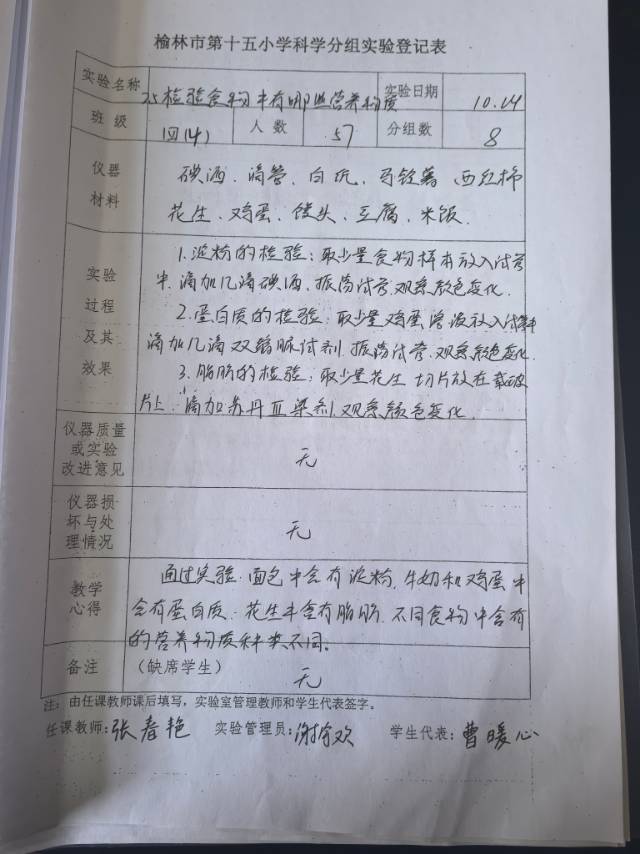 榆林市第十五小学科学分组实验登记表
实验名称 检验食物中有哪些营养物质 实验日期 10.14
班级 四(4) 人数 57 分组数 8
仪器 碘酒、滴管、白纸、马铃薯、西红柿
材料 花生、鸡蛋、馒头、豆腐、米饭.
1.淀粉的检验:取少量食物样本放入试管
实验 中.滴加几滴碘酒、振荡试管.观察颜色变化.
过程 2.蛋白质的检验:取少量鸡蛋溶液放入试管中
及其 滴加几滴双缩脲试剂.振荡试管.观察颜色变化.
效果 3.脂肪的检验:取少量花生切片放在载玻
片上.滴加苏丹Ⅲ染剂.观察颜色变化.
仪器质量
或实验 无
改进意见
仪器损
坏与处 无
理情况
通过实验.面包中含有淀粉.牛奶和鸡蛋中
教学 含有蛋白质.花生中含有脂肪.不同食物中含有
心得 的营养物质种类不同。
备注 (缺席学生) 无
注:由任课教师课后填写,实验室管理教师和学生代表签字。
任课教师:张春艳 实验管理员: 学生代表:曹暖心